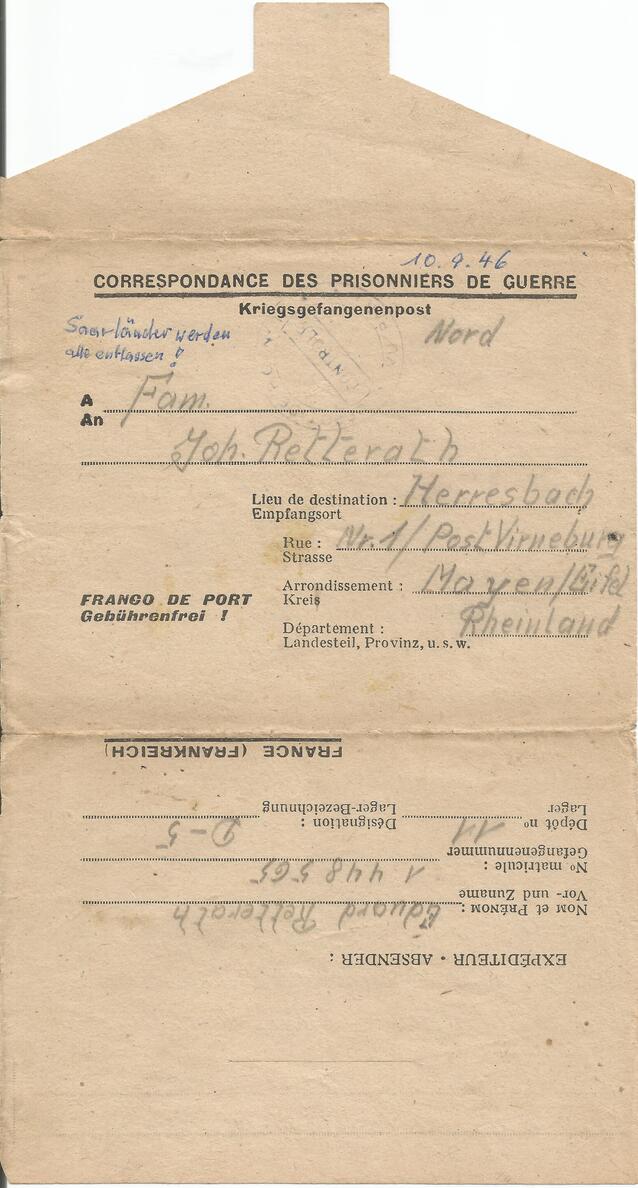 10.9.46
CORRESPONDANCE DES PRISONNIERS DE GUERRE
Kriegsgefangenenpost
Nord
Saarländer werden
alle entlassen!
A Fam.
An
Joh. Retterath
Lieu de destination : Herresbach
Empfangsort
Rue : Nr. 1 / Post Virneburg
Strasse
Arrondissement : Mayen/Eifel
Kreis
FRANCO DE PORT
Gebührenfrei !
Département : Rheinland
Landesteil, Provinz, u. s. w.
EXPÉDITEUR • ABSENDER :
NOM et PRÉNOM : Eduard Retterath
Vor- und Zuname
No matricule : 1 448 565
Gefangenennummer
Dépôt no 11 Désignation : D-5
Lager Lager-Bezeichnung
FRANCE (FRANKREICH)